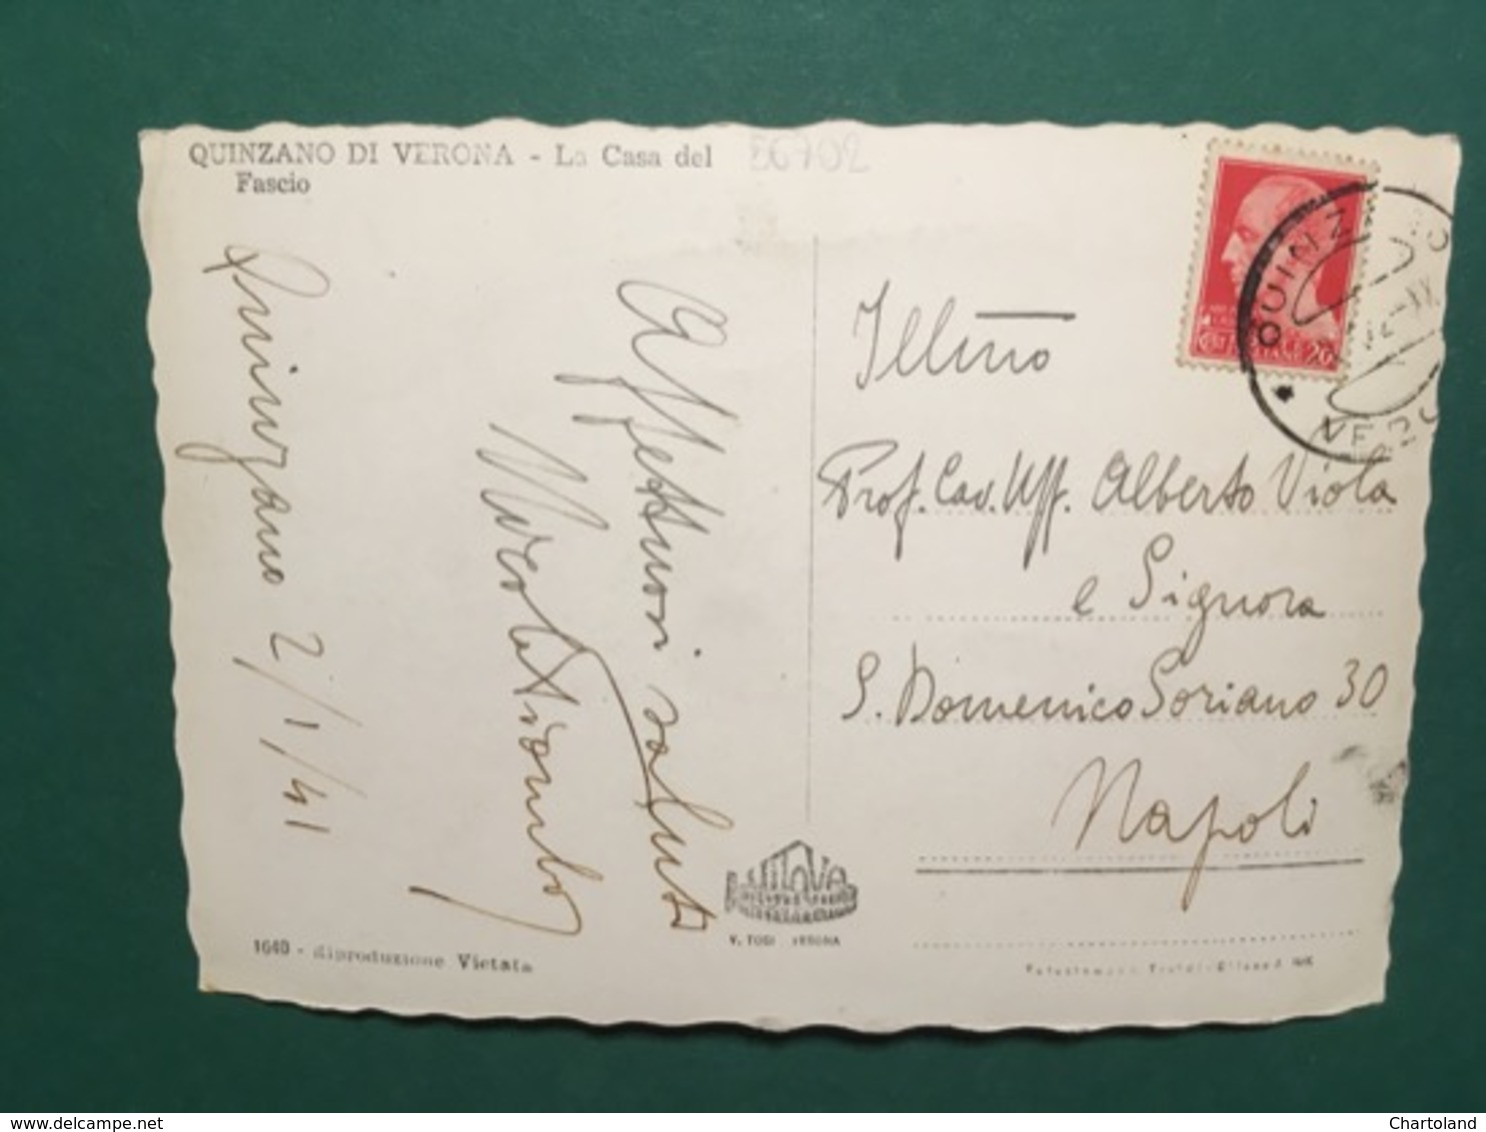 QUINZANO DI VERONA - La Casa del
Fascio
56702
Quinzano 2/1/41
Affettuosi saluti
Illmo
Prof. Cav. Uff. Alberto Viola
e Signora
S. Domenico Soriano 30
Napoli
CENT 20
QUINZ
VERO
V. TOSI VERONA
1640 - Riproduzione Vietata
www.delcampe.net
Chartoland